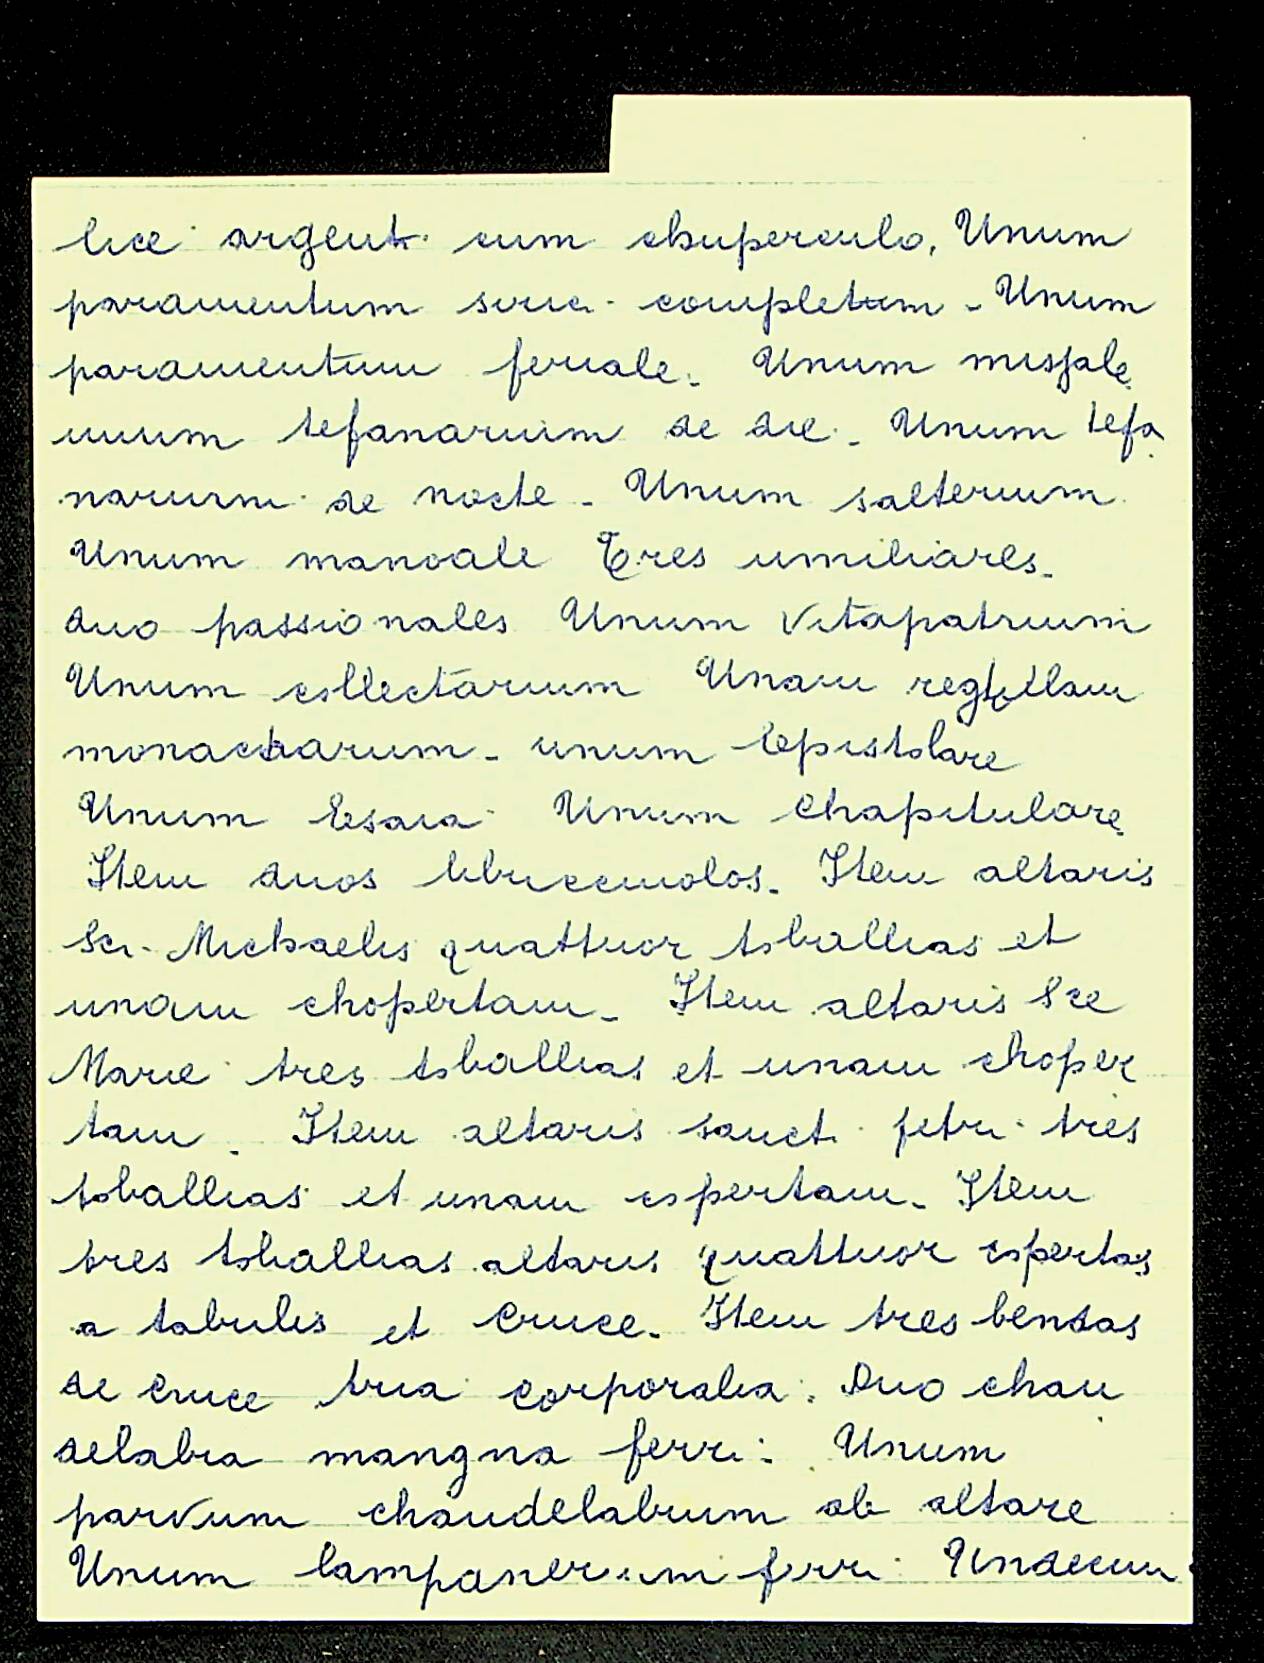 lice argent. cum chuperculo. Unum
paramentum siric. completum - Unum
paramentum feriale. Unum missale
unum tefanarium de die. Unum tefa
narium de nocte - Unum salterium
Unum manoale Tres umiliares.
duo passionales Unum Vitapatrum
Unum collectarium Unam regulam
monacharum - unum Epistolare
Unum Esaia Unum Chapitulare
Item duos libricciuolos. Item altaris
Sci. Michaelis quattuor toballias et
unam chopertam - Item altaris Sce
Marie tres toballias et unam choper
tam. Item altaris sancti petri tres
toballias et unam copertam. Item
tres toballias altaris quattuor copertas
a tabulis et Cruce. Item tres bendas
de Cruce tria corporalia. Duo chan
delabra mangna ferri. Unum
parvum chandelabrum ab altare
Unum lampanerium ferri Undecim